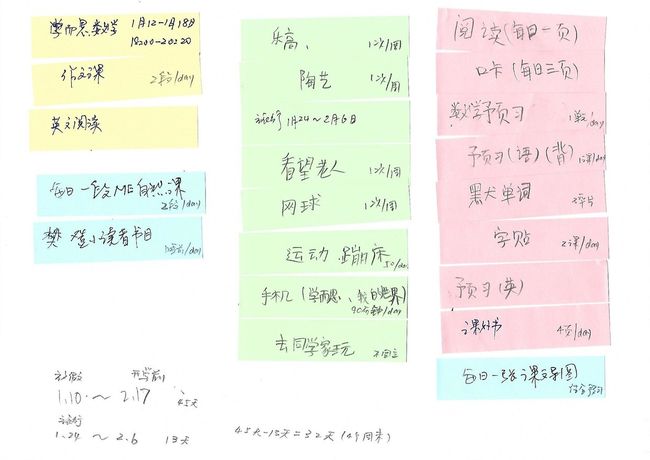 学而思数学 1月12-1月18日
18:00-20:20
作文课 2段/day
英文阅读
每日一段ME自然课
2段/day
樊登小读者书目 /day
乐高、 1次/周
陶艺 1次/周
旅行 1月24~2月6日
看望老人 1次/周
网球 1次/周
运动 蹦床
50/day
手机(学而思、我的世界)
90分钟/day
去同学家玩 不固定
阅读(每日一页)
口卡(每日三页)
数学预习 1单/day
预习(语)(背) 1课/day
黑犬单词
字贴 2课/day
预习(英)
课外书 4页/day
每日一张课文导图
结合预习
放假 开学前
1.10.~2.17 45天
旅行
1.24 ~ 2.6 13天
45天-13天=32天(4个周末)